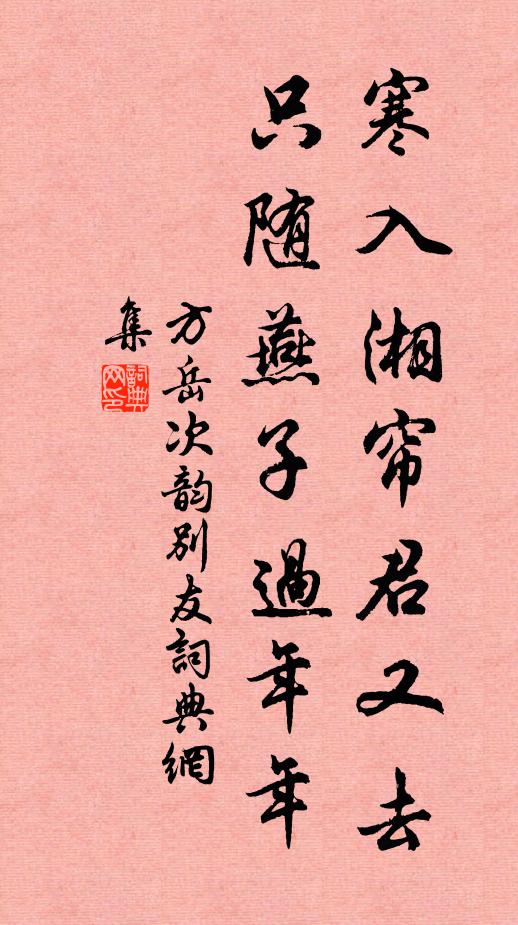 寒入湘帘君又去
只随燕子過年年
方岳次韵别友詞典網
集
詞典
网印